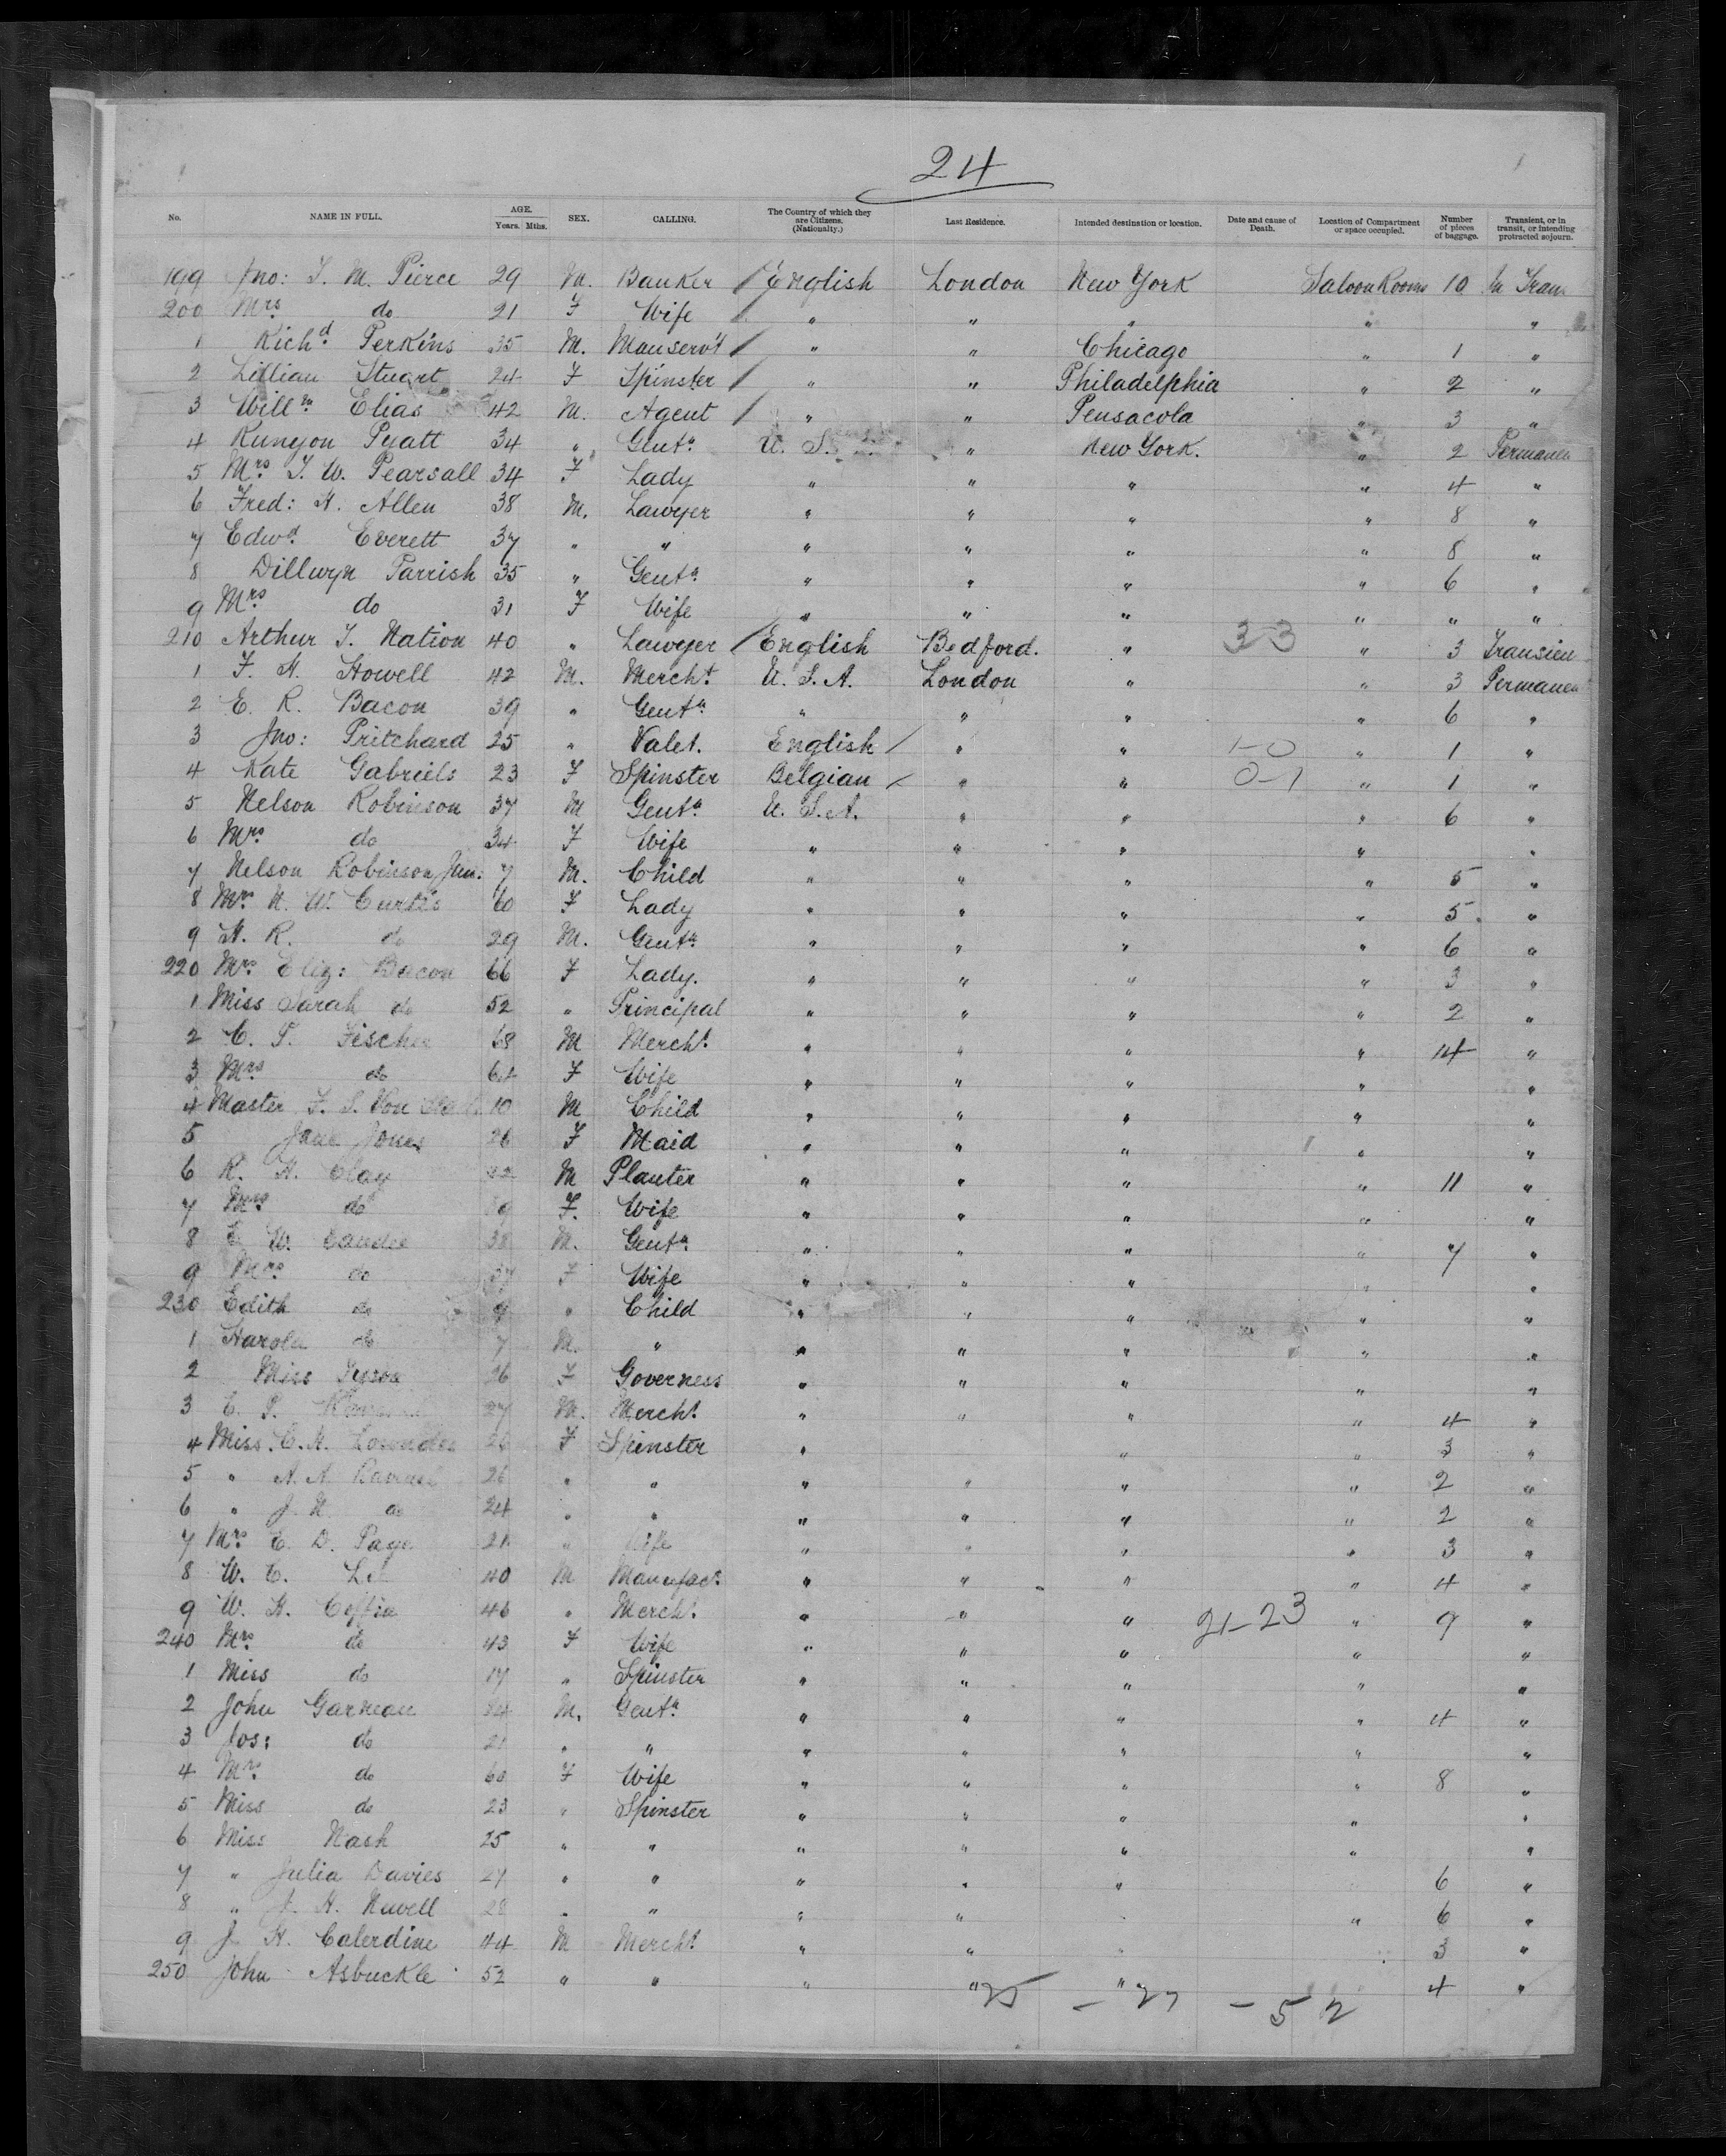 24
No. NAME IN FULL. AGE. Years. Mths. SEX. CALLING. The Country of which they are Citizens. (Nationality.) Last Residence. Intended destination or location. Date and cause of Death. Location of Compartment or space occupied. Number of pieces of baggage. Transient, or in transit, or intending protracted sojourn.
199 Jno: T. M. Pierce 29 M. Banker English London New York Saloon Rooms 10 In Tran
200 Mrs do 21 F Wife " " " " "
1 Richd Perkins 35 M. Manservt " " Chicago " 1 "
2 Lillian Stuart 24 F Spinster " " Philadelphia " 2 "
3 Willm Elias 42 M. Agent " " Pensacola " 3 "
4 Runyon Pyatt 34 " Gentn U. S. " New York. " 2 Permanen
5 Mrs T. W. Pearsall 34 F Lady " " " " 4 "
6 Fred: H. Allen 38 M. Lawyer " " " " 8 "
7 Edwd Everett 37 " " " " " " 8 "
8 Dillwyn Parrish 35 " Gentn " " " " 6 "
9 Mrs do 31 F Wife " " " " " "
210 Arthur T. Nation 40 " Lawyer English Bedford. " 3-3 " 3 Transien
1 F. H. Howell 42 M. Mercht U. S. A. London " " 3 Permanen
2 E. R. Bacon 39 " Gentn " " " " 6 "
3 Jno: Pritchard 25 " Valet. English " " 1-0 " 1 "
4 Kate Gabriels 23 F Spinster Belgian " " 0-1 " 1 "
5 Nelson Robinson 37 M Gentn U. S. A. " " " 6 "
6 Mrs do 34 F Wife " " " " "
7 Nelson Robinson Jun: 7 M. Child " " " " 5 "
8 Mrs N. W. Curtis 60 F Lady " " " " 5 "
9 H. R. do 29 M. Gentn " " " " 6 "
220 Mrs Eliz: Bacon 66 F Lady. " " " " 3 "
1 Miss Sarah do 52 " Principal " " " " 2 "
2 C. P. Fischer 68 M Mercht " " " " 14 "
3 Mrs do 64 F Wife " " " " "
4 Master F. S. Von 10 M Child " " " " "
5 Jane Jones 26 F Maid " " " " "
6 R. H. Clay M Planter " " " " 11 "
7 Mrs do F. Wife " " " " "
8 E. W. Candee 38 M. Gentn " " " " 7 "
9 Mrs do 37 F Wife " " " " "
230 Edith do 9 " Child " " " " "
1 Harold do 7 M. " " " " " "
2 Miss Tyson 26 F Governess " " " " "
3 E. P. 27 M. Mercht " " " " 4 "
4 Miss C. H. Lowndes 26 F Spinster " " " 3 "
5 " A. A. 26 " " " " " " 2 "
6 " J. N. do 24 " " " " " " 2 "
7 Mrs E. D. Page 21 " Wife " " " " 3 "
8 W. C. 40 M Manufacr " " " " 4 "
9 W. H. Coffin 46 " Mercht " " " 21-23 " 9 "
240 Mrs do 43 F Wife " " " " "
1 Miss do 17 " Spinster " " " " "
2 John Garneau M. Gentn " " " " 4 "
3 Jos: do 21 " " " " " " "
4 Mrs do 60 F Wife " " " " 8 "
5 Miss do 23 " Spinster " " " " "
6 Miss Nash 25 " " " " " " "
7 " Julia Davies 27 " " " " " 6 "
8 " J. H. Newell 28 " " " " " 6 "
9 J. H. Calerdine 44 M Mercht " " " 3 "
250 John Asbuckle 52 " " " " " 4 "
25 - 27 - 52